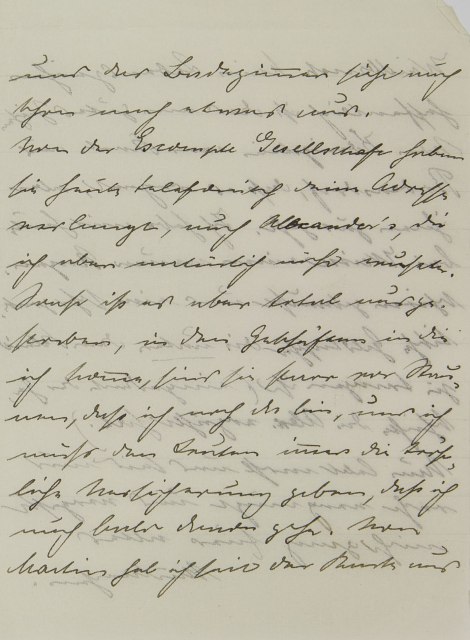 und das Badezimmer sieht auch
schon nach etwas aus.
Von der Escompte Gesellschaft haben
sie heute telefonisch deine Adresse
verlangt, auch Alexander's, die
ich aber natürlich nicht wußte.
Sonst ist es aber total ausge-
storben, in den Geschäften in die
ich komme, sind sie starr vor Stau-
nen, daß ich noch da bin, und ich
muß den Leuten immer die tröst-
liche Versicherung geben, daß ich
auch bald gehe. Von
Martin hab ich seit der Karte aus